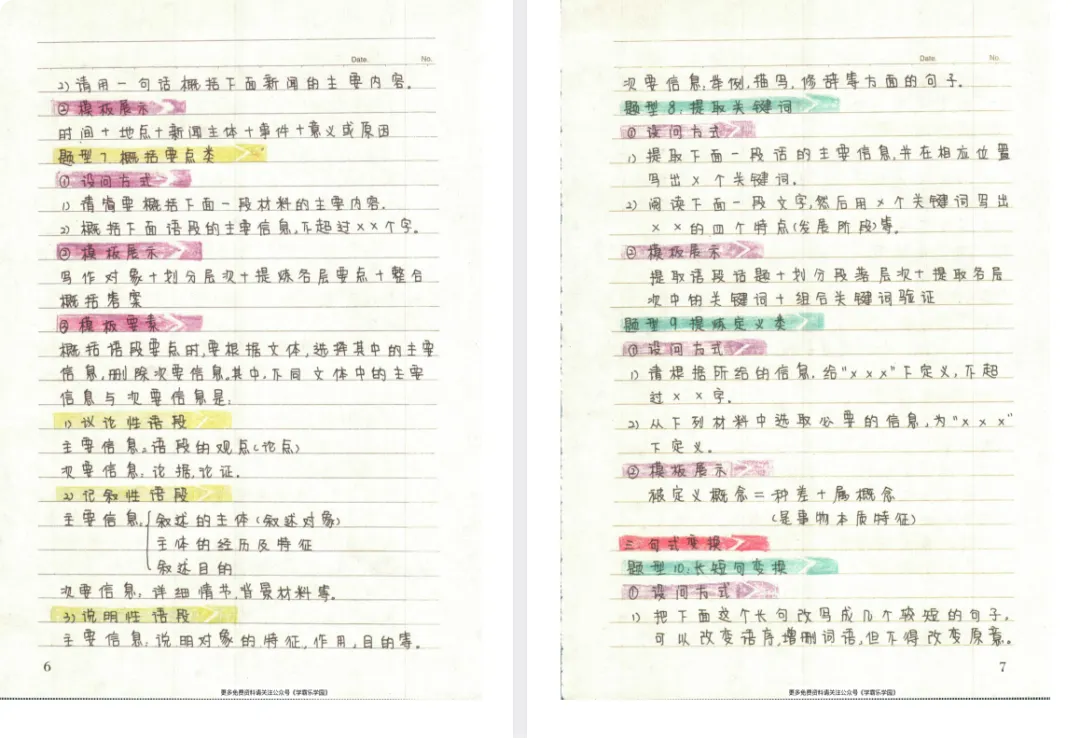 Date.
No.
2）请用一句话概括下面新闻的主要内容。
②模板展示
时间＋地点＋新闻主体＋事件＋意义或原因
题型7.概括要点类
①设问方式
1）请简要概括下面一段材料的主要内容.
2）概括下面语段的主要信息,不超过××个字。
②模板展示
写作对象＋划分层次＋提炼各层要点＋整合
概括答案
③模板要素
概括语段要点时,要根据文体,选择其中的主要
信息,删除次要信息,其中,不同文体中的主要
信息与次要信息是:
1）议论性语段
主要信息:语段的观点(论点)
次要信息:论据,论证.
2）记叙性语段
主要信息{叙述的主体(叙述对象)
主体的经历及特征
叙述目的
次要信息:详细情节,背景材料等.
3）说明性语段
主要信息:说明对象的特征,作用,目的等.
6
更多免费资料请关注公众号《学霸乐学园》
Date.
No.
次要信息:举例,描写,修辞等方面的句子.
题型8:提取关键词
①设问方式
1）提取下面一段话的主要信息,并在相应位置
写出×个关键词.
2）阅读下面一段文字,然后用×个关键词写出
××的四个特点(发展阶段)等.
②模板展示
提取语段话题＋划分段落层次＋提取各层
次中的关键词＋组合关键词验证
题型9提炼定义类
①设问方式
1）请根据所给的信息,给"×××"下定义,不超
过××字.
2）从下列材料中选取必要的信息,为"×××"
下定义.
②模板展示
被定义概念＝种差＋属概念
(是事物本质特征)
三.句式变换
题型10:长短句变换
①设问方式
1）把下面这个长句改写成几个较短的句子,
可以改变语序,增删词语,但不得改变原意。
7
更多免费资料请关注公众号《学霸乐学园》